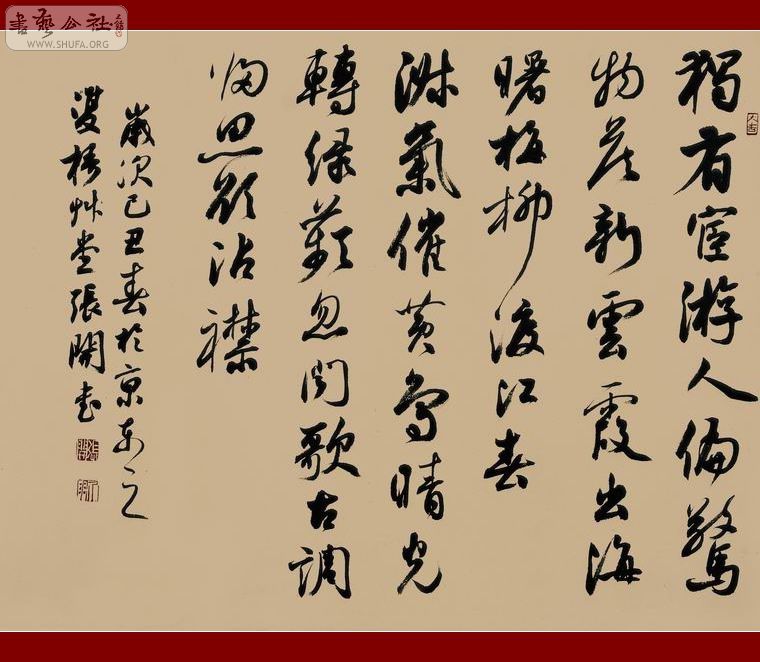 書藝公社
WWW.SHUFA.ORG
獨有宦游人偏驚
物候新雲霞出海
曙梅柳渡江春
淑氣催黄鳥晴光
轉绿蘋忽闻歌古調
归思欲沾襟
歲次己丑春於京東之
雙梧艸堂張開书